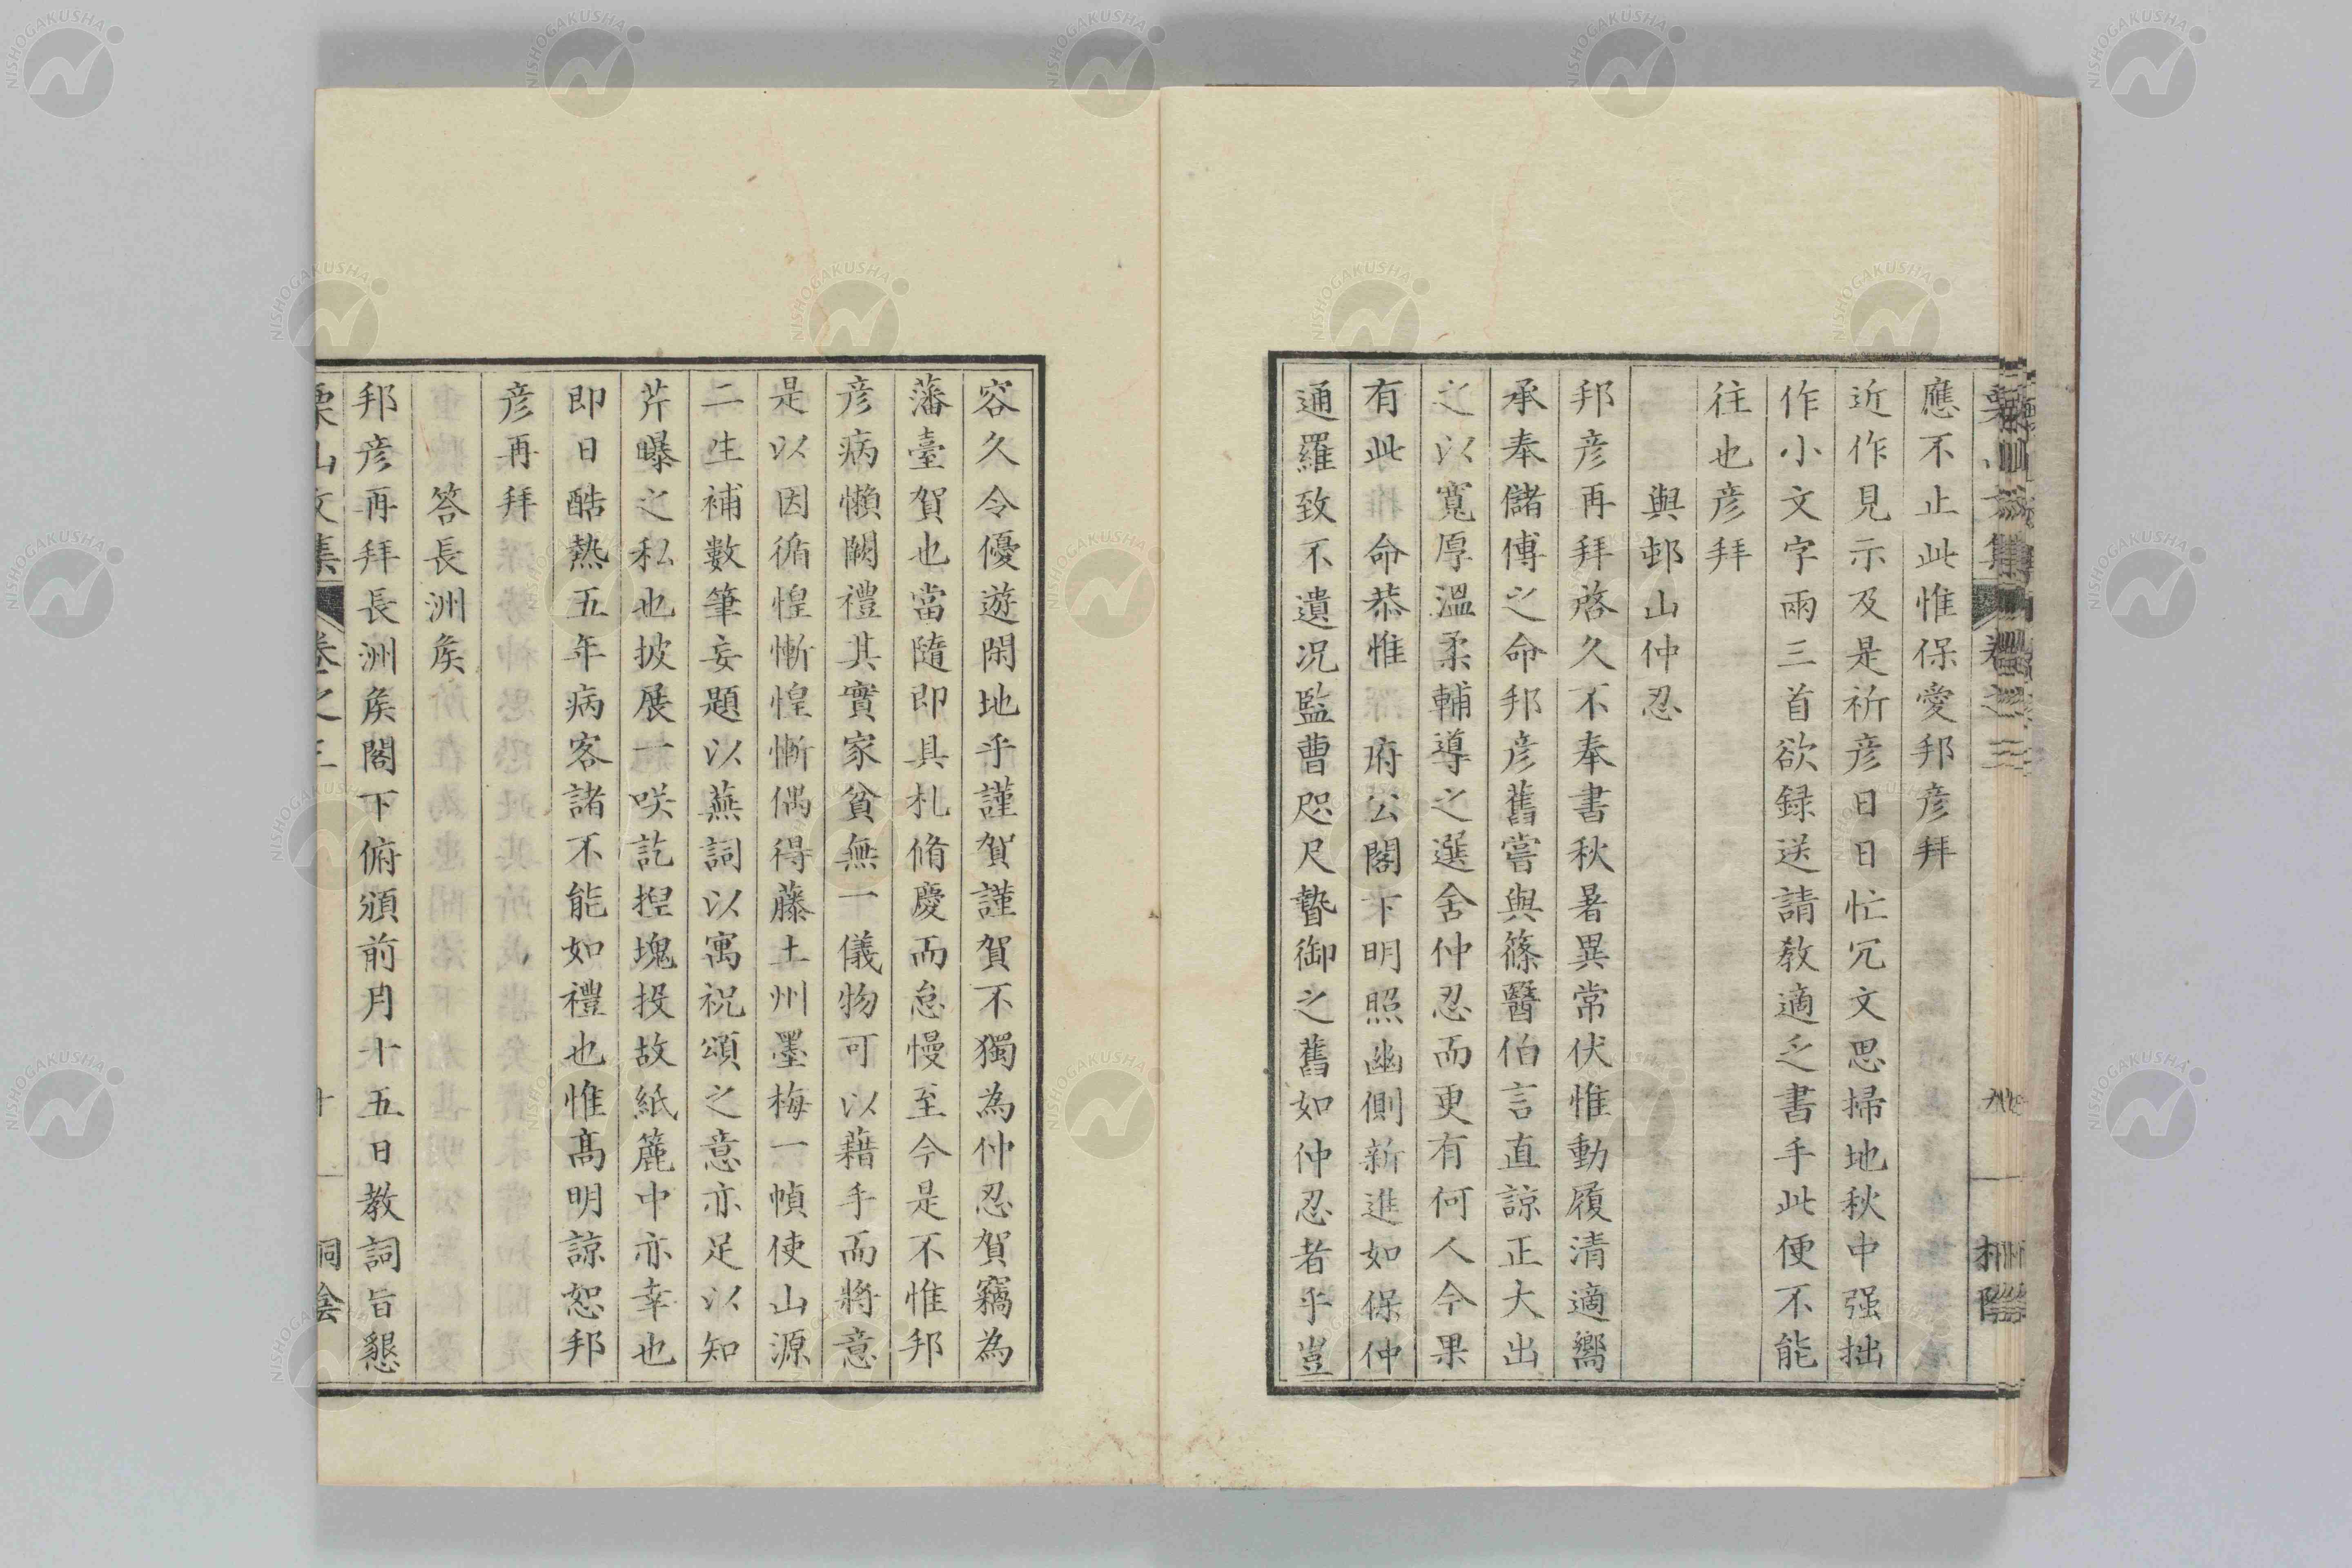 應不止此惟保愛邦彦拜
近作見示及是祈彦日日忙冗文思掃地秋中强拙
作小文字兩三首欲録送請教適乏書手此便不能
往也彦拜
與邨山仲忍
邦彦再拜啓久不奉書秋暑異常伏惟動履清適嚮
承奉儲傅之命邦彦舊嘗與篠醫伯言直諒正大出
之以寬厚溫柔輔導之選舍仲忍而更有何人今果
有此命恭惟府公閣下明照幽側新進如保仲
通羅致不遺况監曹咫尺暬御之舊如仲忍者乎豈
容久令優遊閑地乎謹賀謹賀不獨為仲忍賀竊為
藩臺賀也當隨即具札脩慶而怠慢至今是不惟邦
彦病懶闕禮其實家貧無一儀物可以藉手而將意
是以因循惶慚惶慚偶得藤土州墨梅一幀使山源
二生補數筆妄題以蕪詞以寓祝頌之意亦足以知
芹曝之私也披展一咲訖捏塊投故紙簏中亦幸也
即日酷熱五年病客諸不能如禮也惟髙明諒恕邦
彦再拜
答長洲矦
邦彦再拜長洲矦閣下俯頒前月十五日教詞旨懇
栗山文集 卷之三 十 桐陰
NISHOGAKUSHA